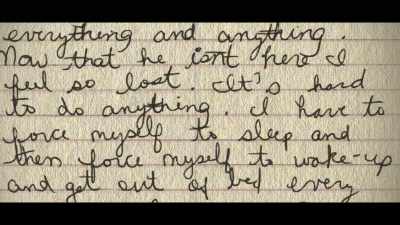 everything and anything.
Now that he isnt here I
feel so lost. It's hard
to do anything. I have to
force myself to sleep and
then force myself to wake-up
and get out of bed every